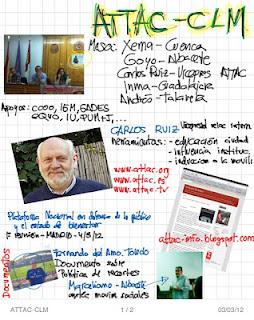 ATTAC-CLM
Mesa: Xema-Cuenca
Goyo-Albacete
Carlos Ruiz-Vicepres ATTAC
Inma-Guadalajara
Andrés-Talavera
Apoyos: CCOO, 15M, SADES
EQUO, IU, PUM+J,...
CARLOS RUIZ
Herramientas: - educación ciudad
- influencia instituc.
- inducción a la movili
www.attac.org
www.attac.es
www.attac.tv
Plataforma Nacional en defensa de lo público
y el estado de bienestar
1ª Reunión-MADRID-4/3/12
attac-info.blogspot.com
Documentos
Fernando del Amo. Toledo
Documento sobre
Política de recortes
Marcelino-Albacete
movim sociales
ATTAC-CLM
1 / 2
03/03/12